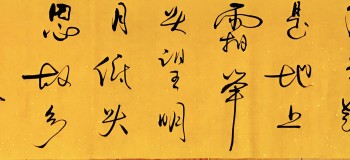 是地上
霜举
头望明
月低头
思故乡